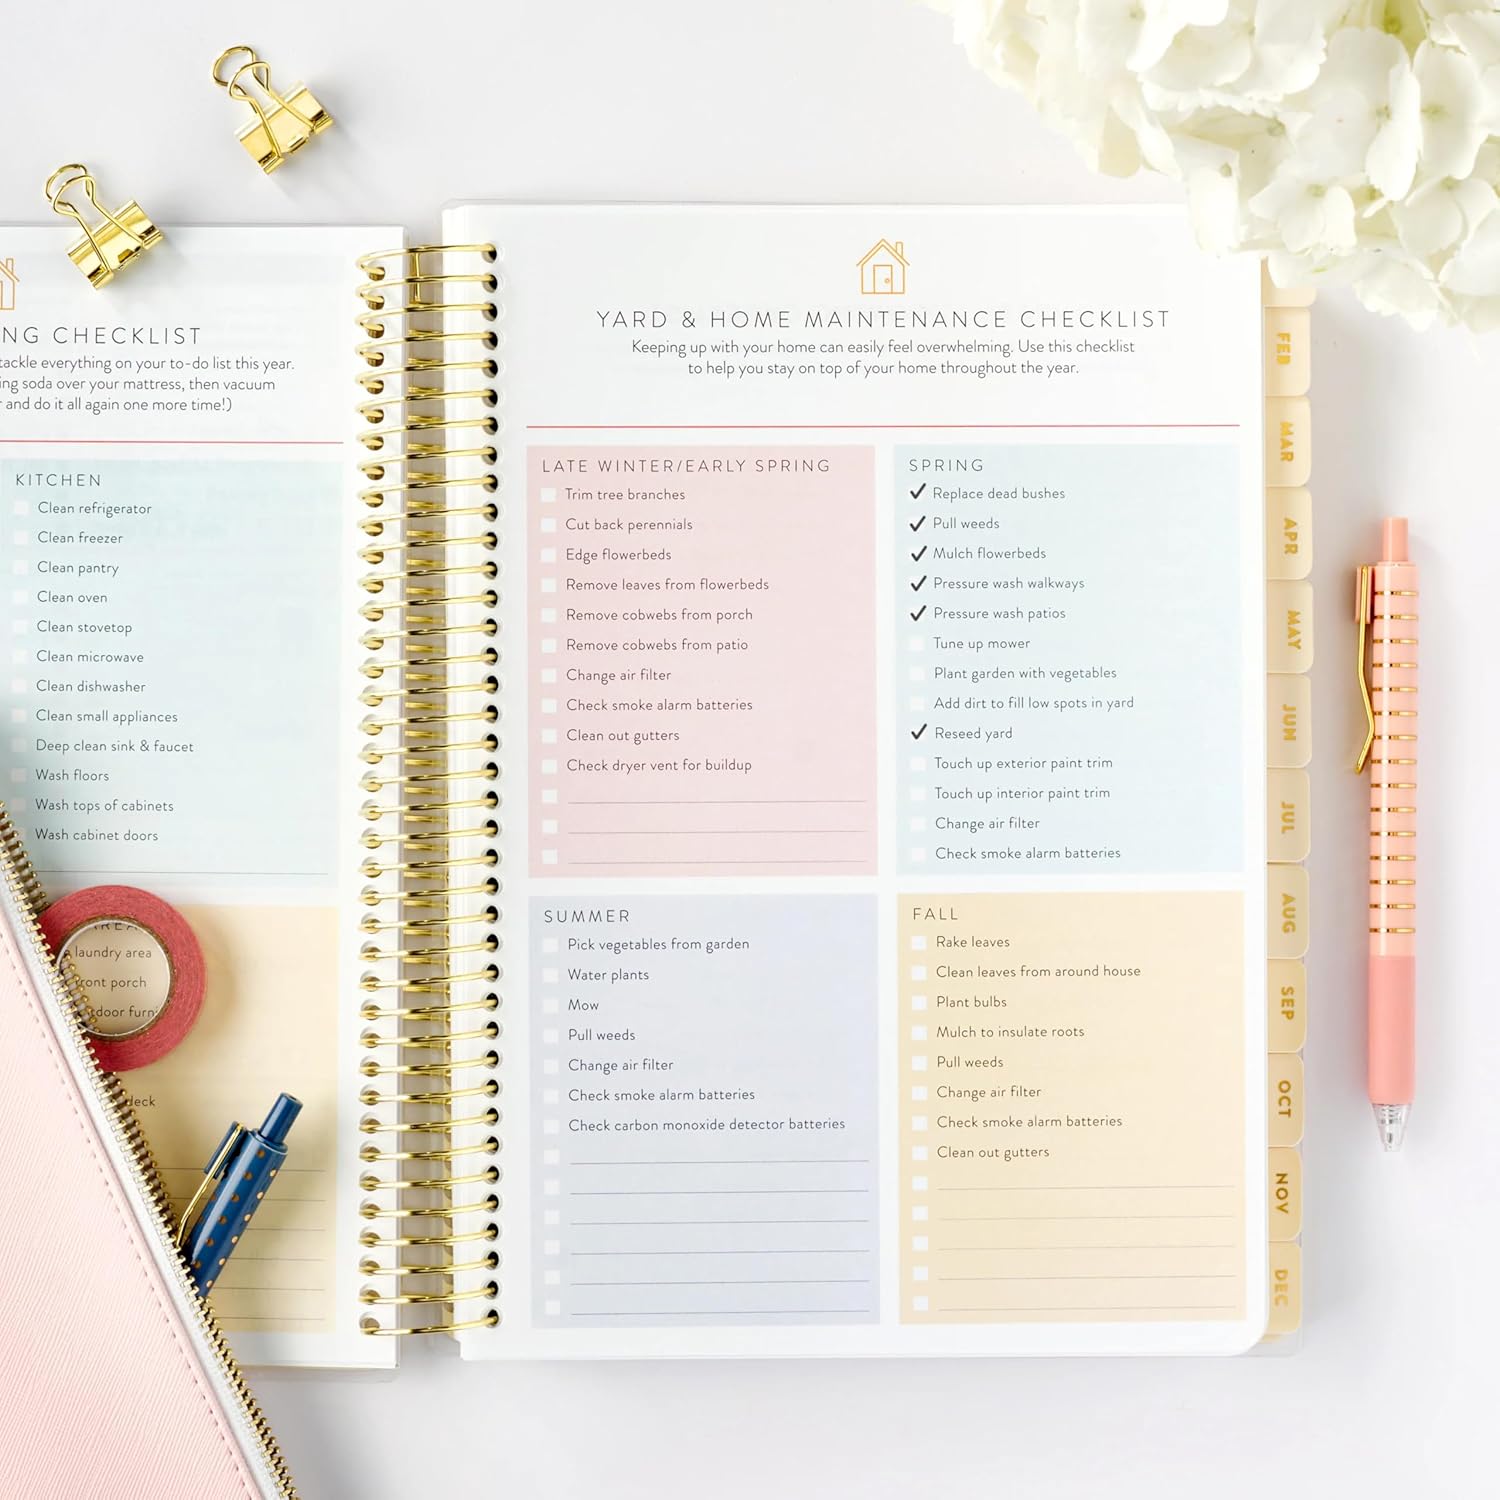 NG CHECKLIST
tackle everything on your to-do list this year.
ing soda over your mattress, then vacuum
and do it all again one more time!)
KITCHEN
Clean refrigerator
Clean freezer
Clean pantry
Clean oven
Clean stovetop
Clean microwave
Clean dishwasher
Clean small appliances
Deep clean sink & faucet
Wash floors
Wash tops of cabinets
Wash cabinet doors
laundry area
ront porch
tdoor furni
deck
YARD & HOME MAINTENANCE CHECKLIST
Keeping up with your home can easily feel overwhelming. Use this checklist
to help you stay on top of your home throughout the year.
LATE WINTER/EARLY SPRING
Trim tree branches
Cut back perennials
Edge flowerbeds
Remove leaves from flowerbeds
Remove cobwebs from porch
Remove cobwebs from patio
Change air filter
Check smoke alarm batteries
Clean out gutters
Check dryer vent for buildup
SPRING
Replace dead bushes
Pull weeds
Mulch flowerbeds
Pressure wash walkways
Pressure wash patios
Tune up mower
Plant garden with vegetables
Add dirt to fill low spots in yard
Reseed yard
Touch up exterior paint trim
Touch up interior paint trim
Change air filter
Check smoke alarm batteries
SUMMER
Pick vegetables from garden
Water plants
Mow
Pull weeds
Change air filter
Check smoke alarm batteries
Check carbon monoxide detector batteries
FALL
Rake leaves
Clean leaves from around house
Plant bulbs
Mulch to insulate roots
Pull weeds
Change air filter
Check smoke alarm batteries
Clean out gutters
FEB
MAR
APR
MAY
JUN
JUL
AUG
SEP
OCT
NOV
DEC